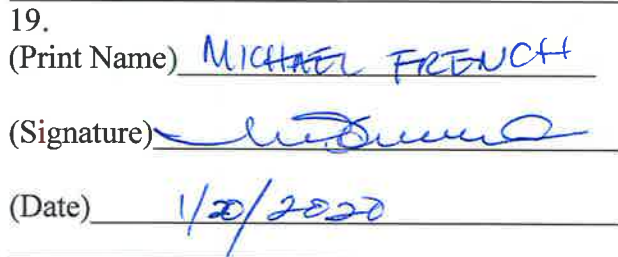 19.
(Print Name) MICHAEL FRENCH
(Signature)
(Date) 1/20/2020